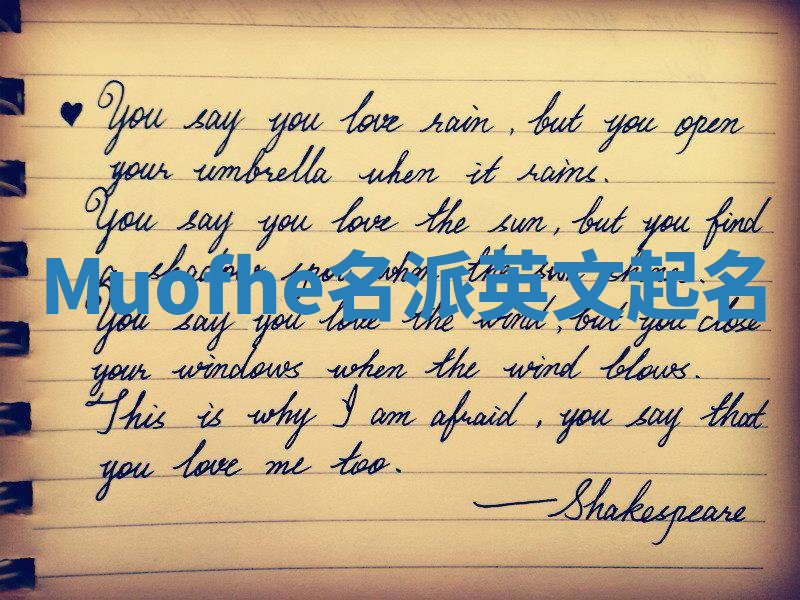 ♥ You say you love rain, but you open
your umbrella when it rains.
You say you love the sun, but you find
a shadow spot when the sun shines.
Muofhe名派英文起名
You say you love the wind, but you close
your windows when the wind blows.
This is why I am afraid, you say that
you love me too.
— Shakespeare